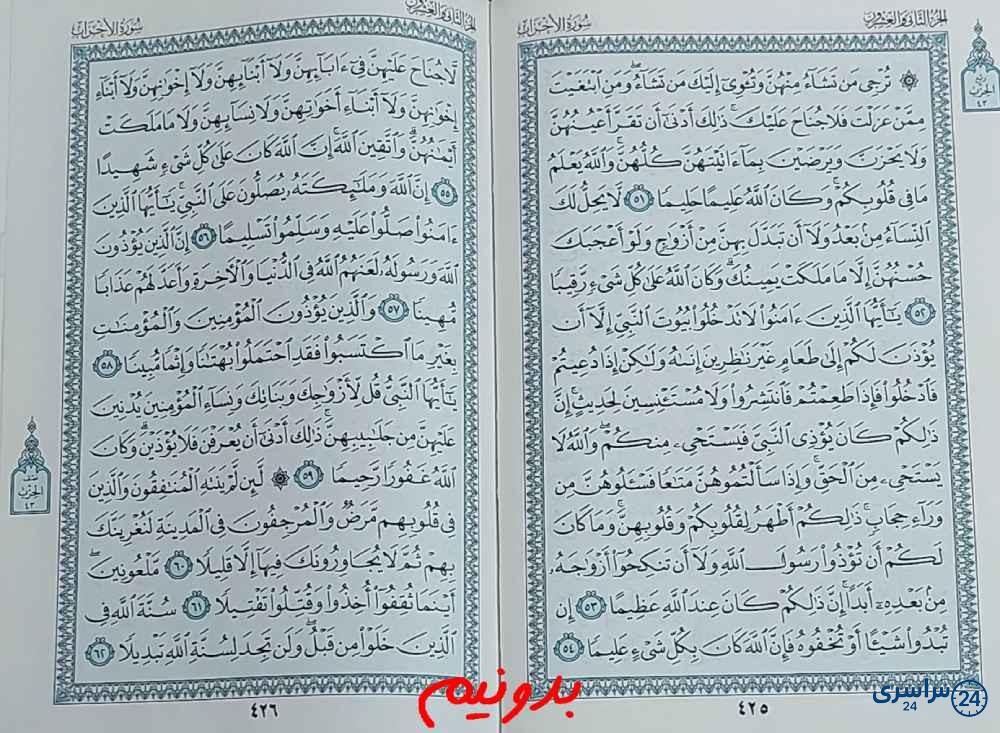 الجزء الثاني والعشرون
سورة الأحزاب
۞ تُرْجِى مَن تَشَآءُ مِنْهُنَّ وَتُـْٔوِىٓ إِلَيْكَ مَن تَشَآءُۖ وَمَنِ ٱبْتَغَيْتَ
مِمَّنْ عَزَلْتَ فَلَا جُنَاحَ عَلَيْكَۚ ذَٰلِكَ أَدْنَىٰٓ أَن تَقَرَّ أَعْيُنُهُنَّ
وَلَا يَحْزَنَّ وَيَرْضَيْنَ بِمَآ ءَاتَيْتَهُنَّ كُلُّهُنَّۚ وَٱللَّهُ يَعْلَمُ
مَا فِى قُلُوبِكُمْۚ وَكَانَ ٱللَّهُ عَلِيمًا حَلِيمًا ٥١ لَّا يَحِلُّ لَكَ
ٱلنِّسَآءُ مِنۢ بَعْدُ وَلَآ أَن تَبَدَّلَ بِهِنَّ مِنْ أَزْوَٰجٍ وَلَوْ أَعْجَبَكَ
حُسْنُهُنَّ إِلَّا مَا مَلَكَتْ يَمِينُكَۗ وَكَانَ ٱللَّهُ عَلَىٰ كُلِّ شَىْءٍ رَّقِيبًا
٥٢ يَـٰٓأَيُّهَا ٱلَّذِينَ ءَامَنُوا۟ لَا تَدْخُلُوا۟ بُيُوتَ ٱلنَّبِىِّ إِلَّآ أَن
يُؤْذَنَ لَكُمْ إِلَىٰ طَعَامٍ غَيْرَ نَـٰظِرِينَ إِنَىٰهُ وَلَـٰكِنْ إِذَا دُعِيتُمْ
فَٱدْخُلُوا۟ فَإِذَا طَعِمْتُمْ فَٱنتَشِرُوا۟ وَلَا مُسْتَـْٔنِسِينَ لِحَدِيثٍۚ إِنَّ
ذَٰلِكُمْ كَانَ يُؤْذِى ٱلنَّبِىَّ فَيَسْتَحْىِۦ مِنكُمْۖ وَٱللَّهُ لَا
يَسْتَحْىِۦ مِنَ ٱلْحَقِّۚ وَإِذَا سَأَلْتُمُوهُنَّ مَتَـٰعًا فَسْـَٔلُوهُنَّ مِن
وَرَآءِ حِجَابٍۚ ذَٰلِكُمْ أَطْهَرُ لِقُلُوبِكُمْ وَقُلُوبِهِنَّۚ وَمَا كَانَ
لَكُمْ أَن تُؤْذُوا۟ رَسُولَ ٱللَّهِ وَلَآ أَن تَنكِحُوٓا۟ أَزْوَٰجَهُۥ
مِنۢ بَعْدِهِۦٓ أَبَدًاۚ إِنَّ ذَٰلِكُمْ كَانَ عِندَ ٱللَّهِ عَظِيمًا ٥٣ إِن
تُبْدُوا۟ شَيْـًٔا أَوْ تُخْفُوهُ فَإِنَّ ٱللَّهَ كَانَ بِكُلِّ شَىْءٍ عَلِيمًا ٥٤
٤٢٥
ربع
الحزب
٤٣
الجزء الثاني والعشرون
سورة الأحزاب
لَّا جُنَاحَ عَلَيْهِنَّ فِىٓ ءَابَآئِهِنَّ وَلَآ أَبْنَآئِهِنَّ وَلَآ إِخْوَٰنِهِنَّ وَلَآ أَبْنَآءِ
إِخْوَٰنِهِنَّ وَلَآ أَبْنَآءِ أَخَوَٰتِهِنَّ وَلَا نِسَآئِهِنَّ وَلَا مَا مَلَكَتْ
أَيْمَـٰنُهُنَّۗ وَٱتَّقِينَ ٱللَّهَۚ إِنَّ ٱللَّهَ كَانَ عَلَىٰ كُلِّ شَىْءٍ شَهِيدًا
٥٥ إِنَّ ٱللَّهَ وَمَلَـٰٓئِكَتَهُۥ يُصَلُّونَ عَلَى ٱلنَّبِىِّۚ يَـٰٓأَيُّهَا ٱلَّذِينَ
ءَامَنُوا۟ صَلُّوا۟ عَلَيْهِ وَسَلِّمُوا۟ تَسْلِيمًا ٥٦ إِنَّ ٱلَّذِينَ يُؤْذُونَ
ٱللَّهَ وَرَسُولَهُۥ لَعَنَهُمُ ٱللَّهُ فِى ٱلدُّنْيَا وَٱلْـَٔاخِرَةِ وَأَعَدَّ لَهُمْ عَذَابًا
مُّهِينًا ٥٧ وَٱلَّذِينَ يُؤْذُونَ ٱلْمُؤْمِنِينَ وَٱلْمُؤْمِنَـٰتِ
بِغَيْرِ مَا ٱكْتَسَبُوا۟ فَقَدِ ٱحْتَمَلُوا۟ بُهْتَـٰنًا وَإِثْمًا مُّبِينًا ٥٨
يَـٰٓأَيُّهَا ٱلنَّبِىُّ قُل لِّأَزْوَٰجِكَ وَبَنَاتِكَ وَنِسَآءِ ٱلْمُؤْمِنِينَ يُدْنِينَ
عَلَيْهِنَّ مِن جَلَـٰبِيبِهِنَّۚ ذَٰلِكَ أَدْنَىٰٓ أَن يُعْرَفْنَ فَلَا يُؤْذَيْنَۗ وَكَانَ
ٱللَّهُ غَفُورًا رَّحِيمًا ٥٩ ۞ لَّئِن لَّمْ يَنتَهِ ٱلْمُنَـٰفِقُونَ وَٱلَّذِينَ
فِى قُلُوبِهِم مَّرَضٌ وَٱلْمُرْجِفُونَ فِى ٱلْمَدِينَةِ لَنُغْرِيَنَّكَ
بِهِمْ ثُمَّ لَا يُجَاوِرُونَكَ فِيهَآ إِلَّا قَلِيلًا ٦٠ مَّلْعُونِينَۖ
أَيْنَمَا ثُقِفُوٓا۟ أُخِذُوا۟ وَقُتِّلُوا۟ تَقْتِيلًا ٦١ سُنَّةَ ٱللَّهِ فِى
ٱلَّذِينَ خَلَوْا۟ مِن قَبْلُۖ وَلَن تَجِدَ لِسُنَّةِ ٱللَّهِ تَبْدِيلًا ٦٢
٤٢٦
نصف
الحزب
٤٣
بدونیم
سراسری 24
24